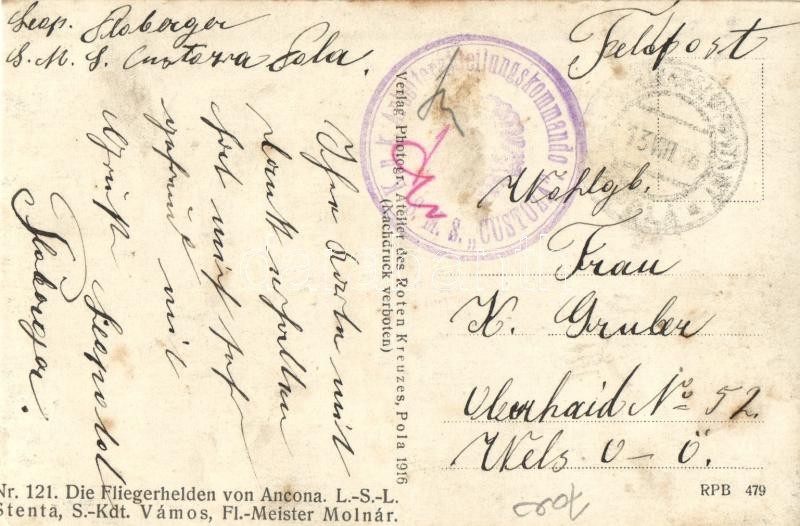 Leop. Floberger
S. M. S. Custozza Pola.
Feldpost
K.u.K. Arbeiterabteilungskommando
S. M. S. "CUSTOZA"
13 VIII 16
Wohlgb.
Frau
K. Gruber
Oberhaid No 52.
Wels O-Ö.
Ihre Karte mit
Dank erhalten
hat mich sehr
gefreut mit
Gruß Leopold
Floberger.
Verlag Photogr. Atelier des Roten Kreuzes, Pola 1916
(Nachdruck verboten)
Nr. 121. Die Fliegerhelden von Ancona. L.-S.-L.
Stenta, S.-Kdt. Vámos, Fl.-Meister Molnár.
RPB 479